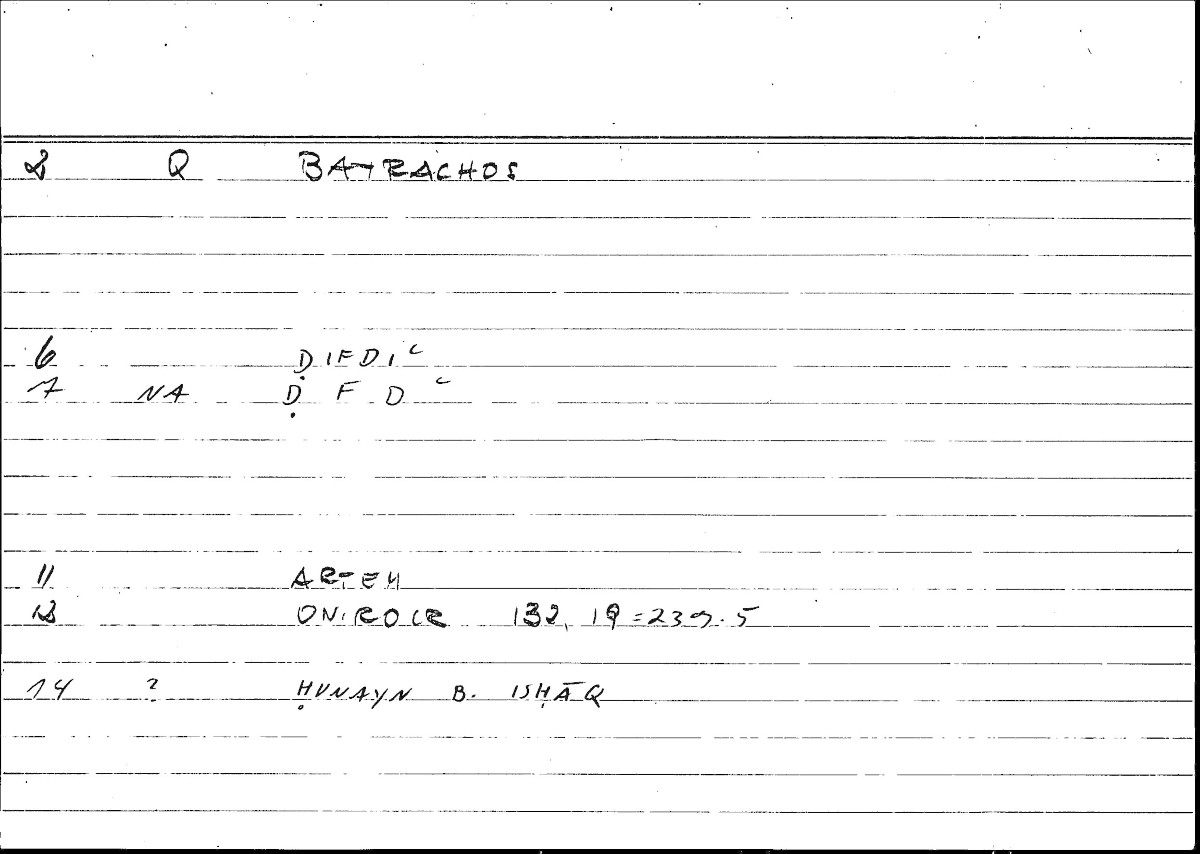 2 Q BATRACHOS
6 ḌIFDIʿ
7 NA Ḍ F D ʿ
11 ARTEM
13 ONIROCR 132, 19 = 239.5
14 ? ḤUNAYN B. ISḤĀQ